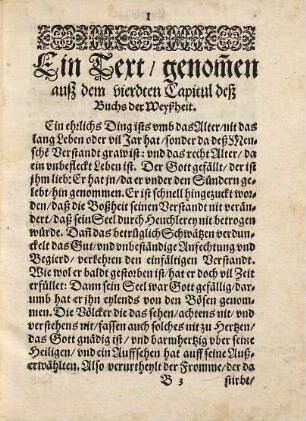 1
Ein Text / genom̃en
auß dem vierdten Capitul deß
Buchs der Weyßheit.
Ein ehrlichs Ding ists vmb das Alter / nit das
lang Leben oder vil Jar hat / sonder da deß Men-
schẽ Verstandt graw ist: vnd das recht Alter / da
ein vnbefleckt Leben ist. Der Gott gefällt / der ist
jhm lieb: Er hat jn / da er vnder den Sündern ge-
lebt / hin genommen. Er ist schnell hingezuckt wor-
den / daß die Boßheit seinen Verstandt nit verän-
dert / daß sein Seel durch Heuchlerey nit betrogen
würde. Dañ das betrüglich Schwätzen verdun-
ckelt das Gut / vnd vnbeständige Anfechtung vnd
Begierd / verkehren den einfältigen Verstandt.
Wie wol er baldt gestorben ist / hat er doch vil Zeit
erfüllet: Dann sein Seel war Gott gefällig / dar-
umb hat er jhn eylends von den Bösen genom-
men. Die Völcker die das sehen / achtens nit / vnd
verstehens nit / fassen auch solches nit zu Hertzen /
das Gott gnädig ist / vnd barmhertzig vber seine
Heiligen / vnd ein Auffsehen hat auff seine Auß-
erwählten. Also verurtheylt der Fromme / der da
B 3 stirbt /